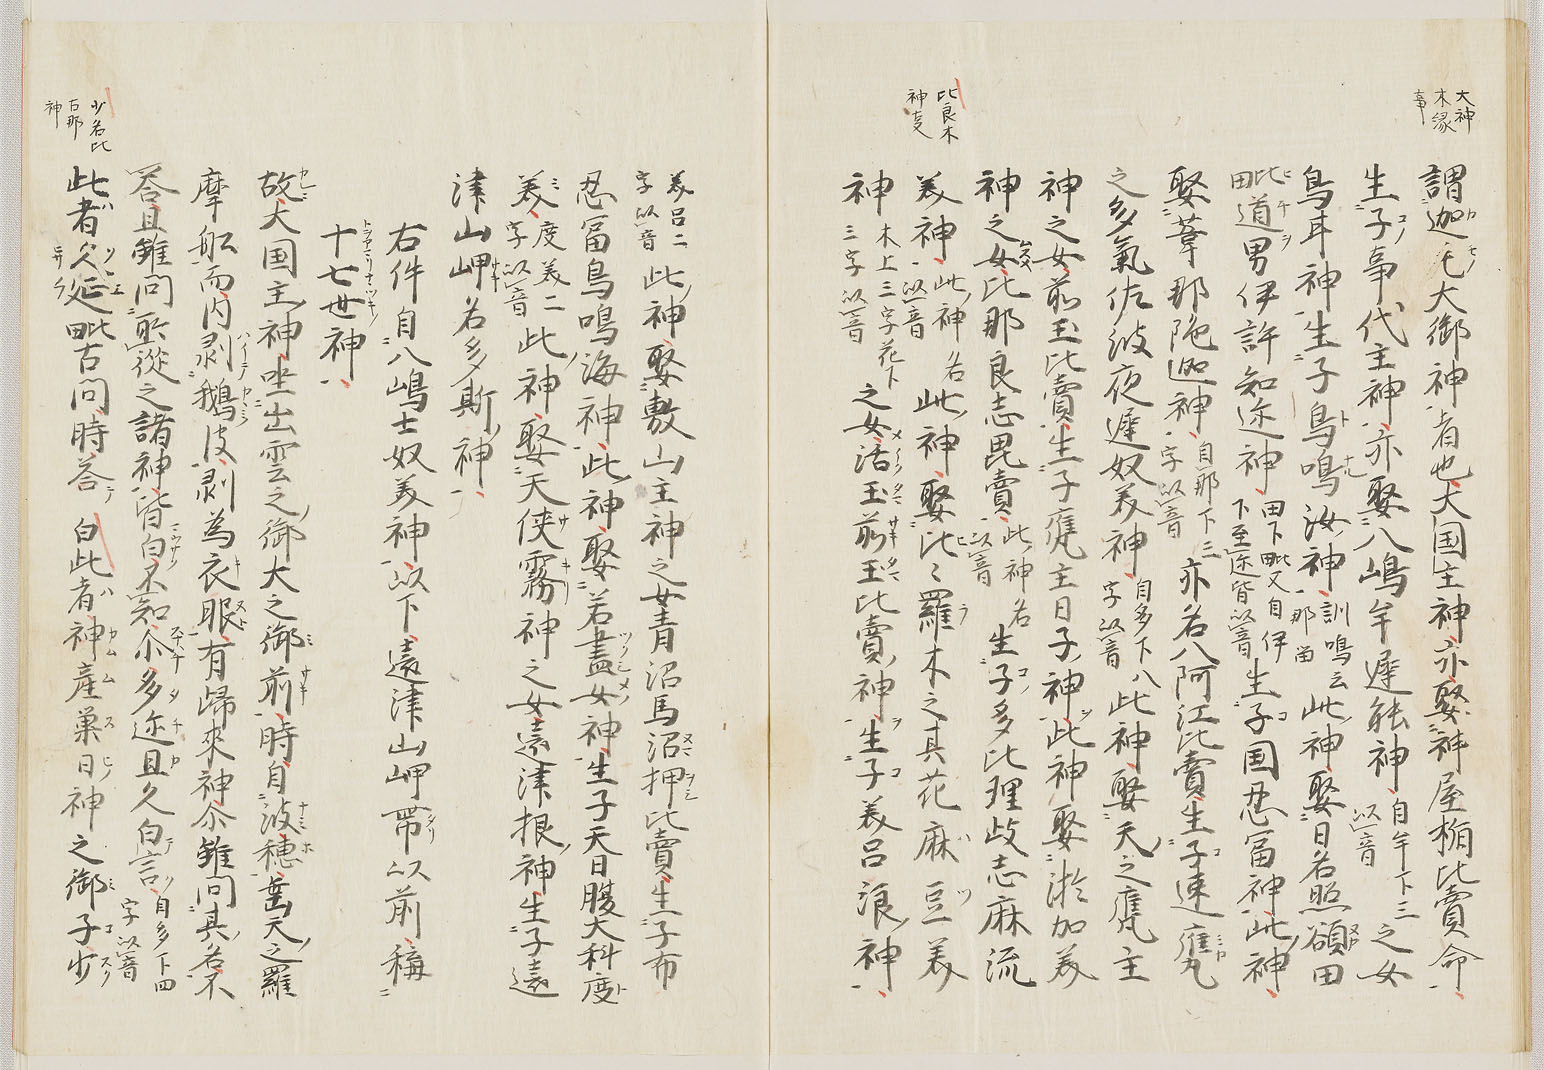 大神
木縁
事
謂迦毛大御神者也大国主神亦娶神屋楯比賣命
生子事代主神亦娶八嶋牟遅能神自牟下三以音之女
鳥耳神生子鳥鳴汝神訓鳴云那留此神娶日名照額田
毗道男伊許知迩神田下毗又自伊下至迩皆以音生子国忍富神此神
娶葦那陁迦神自那下三字以音亦名八阿江比賣生子速甕
之多氣佐波夜遅奴美神自多下八字以音此神娶天之甕主
神之女前玉比賣生子甕主日子神此神娶淤加美
神之女比那良志毘賣此神名以音生子多比理岐志麻流
比良木
神事
美神此神名以音此神娶比々羅木之其花麻豆美
神木上三字花下三字以音之女活玉前玉比賣神生子美呂浪神
美呂二字以音此神娶敷山主神之女青沼馬沼押比賣生子布
忍富鳥鳴海神此神娶若盡女神生子天日腹大科度
美度美二字以音此神娶天侠霧神之女遠津根神生子遠
津山岬名多斯神
右件自八嶋士奴美神以下遠津山岬帯以前称
十七世神
故大国主神坐出雲之御大之御前時自波穂乗天之羅
摩舩而内剥鵝皮剥為衣服有歸来神尒雖問其名不
答且雖問所從之諸神皆白不知尒多迩且久白言自多下四字以音
少名比
古那
神
此者久延毗古問時答白此者神産巣日神之御子少